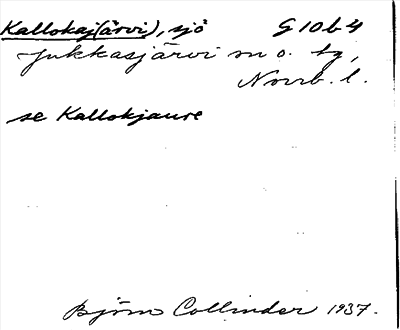 Kallokaj(ärvi), sjö G 10 b 4
Jukkasjärvi sn o. tg,
Norrb. l.
se Kallokjaure
Björn Collinder 1937.